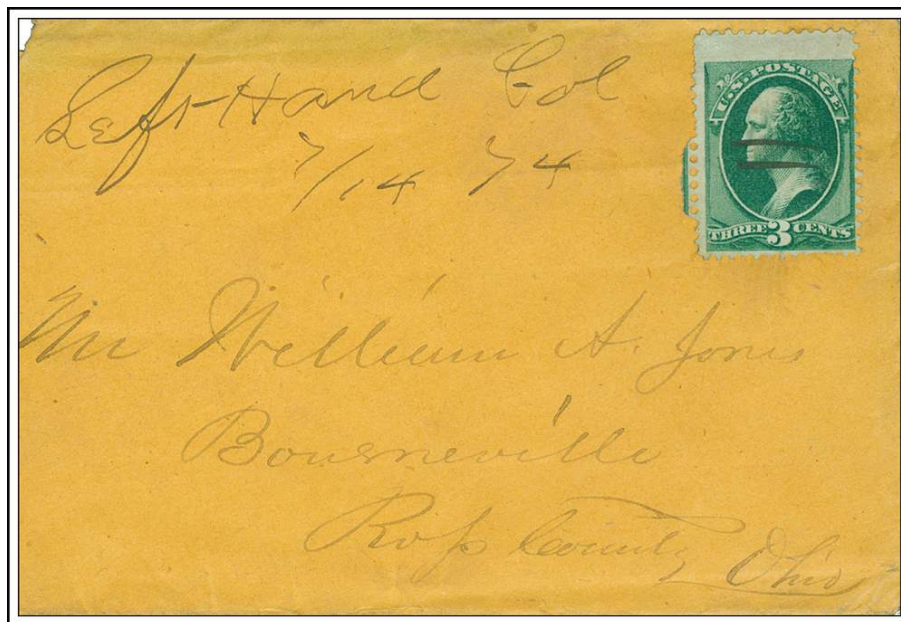 Left Hand Col
7/14 74
U.S. POSTAGE
THREE 3 CENTS
Mr William A. Jones
Bourneville
Ross County Ohio